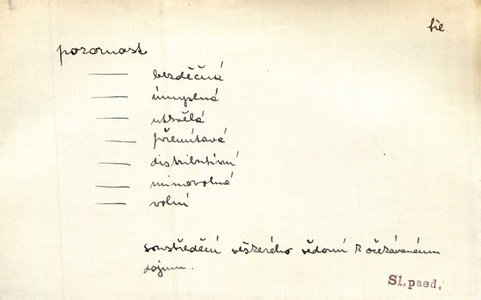 fie
pozornost
— bezděčná
— úmyslná
— utkvělá
— přemítavá
— distributivní
— mimovolná
— volní
soustředění veškerého vědomí k očekávanému
dojmu.
Sl.paed.